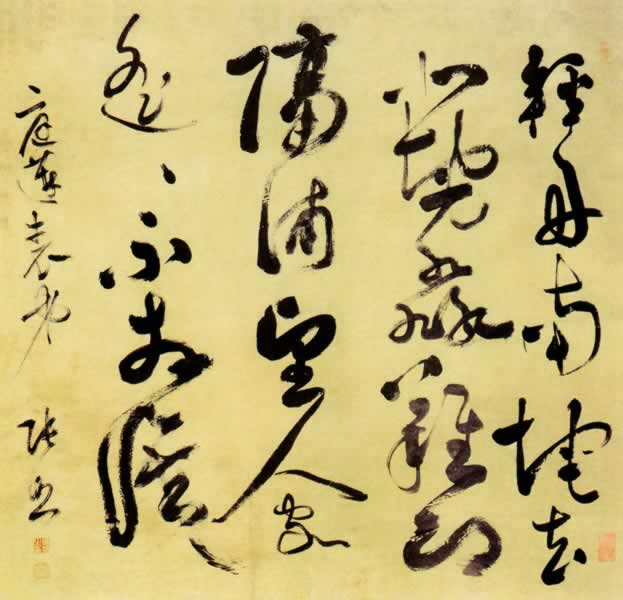 輕舟南垞去
北垞淼難即
隔浦望人家
遙々不相識
庭蓮